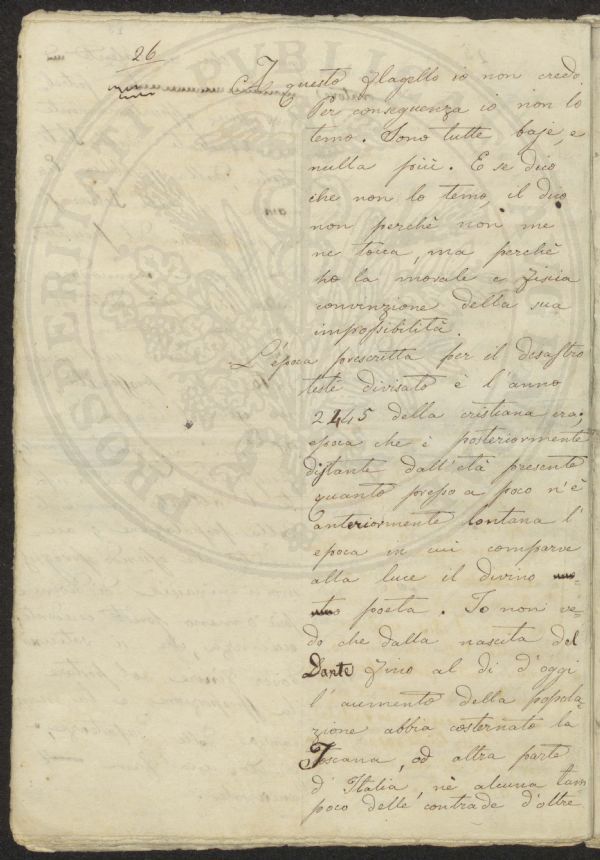 26
A questo flagello io non credo.
Per conseguenza io non lo
temo. Sono tutte baje, e
nulla più. E se dico
che non lo temo, il dico
non perchè non me
ne tocca, ma perchè
ho la morale e fisica
convinzione della sua
impossibilità.
L'época prescritta per il desastro
testè divisato è l'anno
2445 della cristiana era;
epoca che è posteriormente
distante dall'età presente
quanto presso a poco n'è
anteriormente lontana l'
epoca in cui comparve
alla luce il divino
poeta. Io non ve=
do che dalla nascita del
Dante fino al dì d'oggi
l'aumento della popola=
zione abbia costernato la
Toscana, od altra parte
d'Italia, nè alcuna tam
poco delle contrade d'oltre
PROSPERITATI PUBLICA